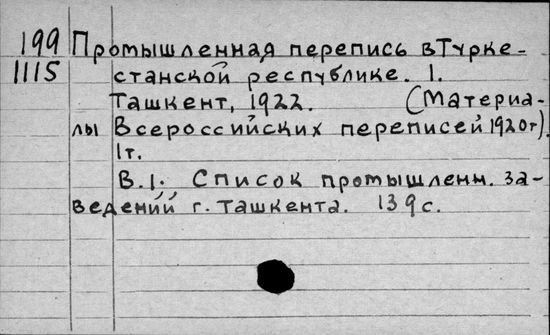 199 Промышленная перепись в Турке-
1115 станской республике. 1.
Ташкент, 1922. (Материа-
лы Всероссийских переписей 1920г).
1т.
В.1. Список промышленн. за-
ведений г. Ташкента. 139с.